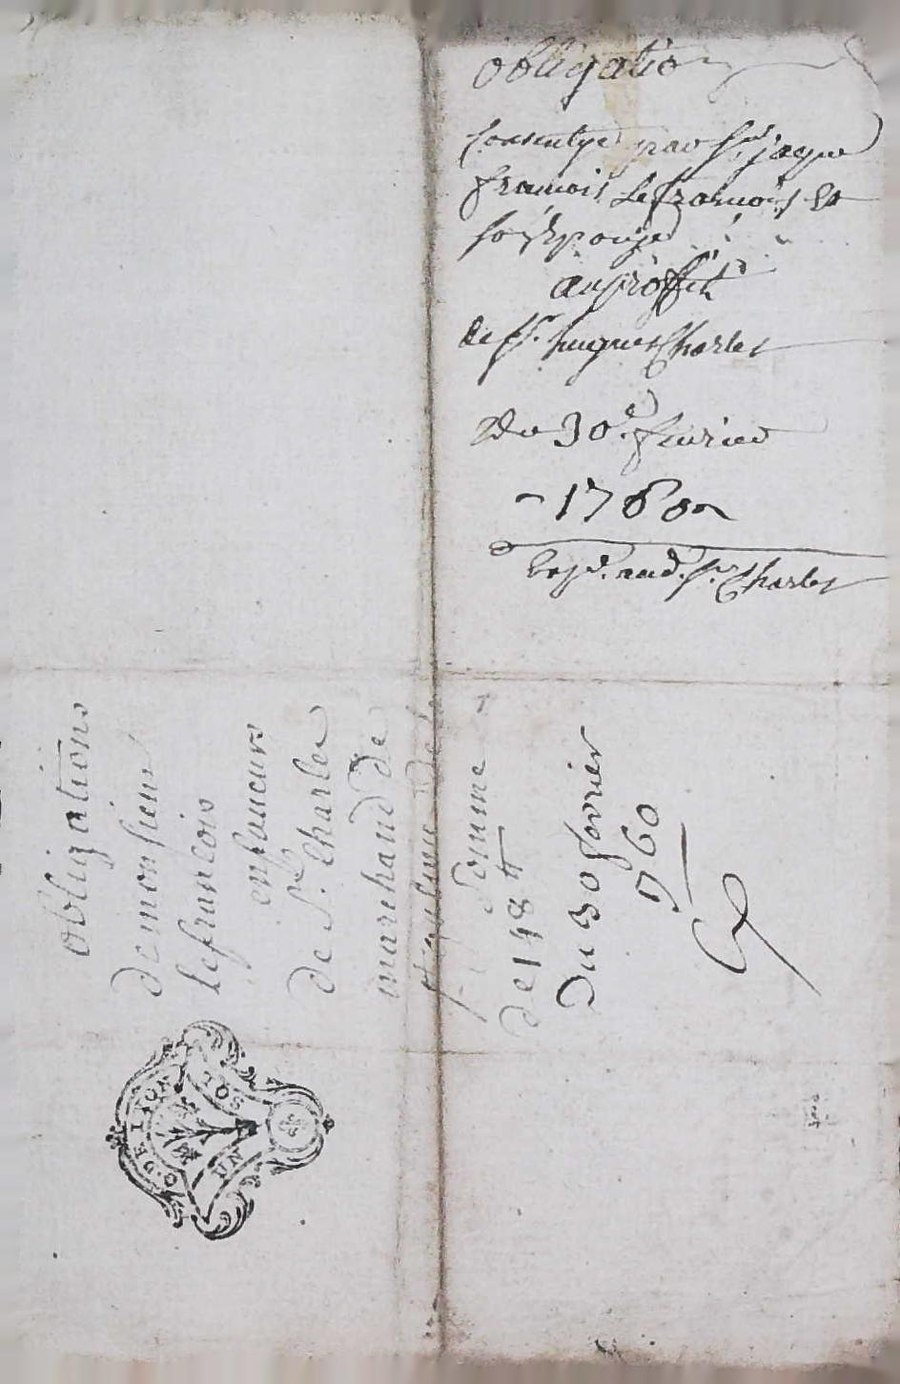 obligation
par Sr. jaque
francois Lefrancois Et
son Epouse
au proffit
de Sr. hugues Charles
Du 30e. fevrier
1760
Expd. aud. Sr. Charles
obligations
de monsieur
lefrancois
en faveur
de Sr. Charles
marchand de
somme
de 148 ₶
Du 30 fevrier
1760
G. DE LYON
UN SOL